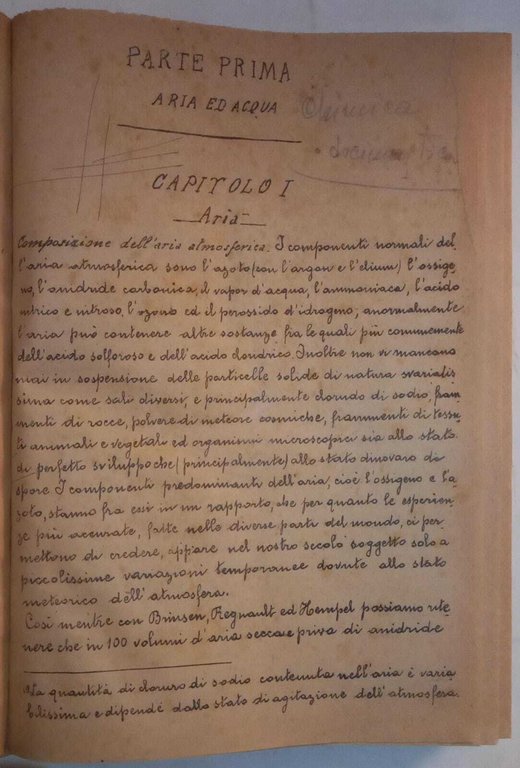 PARTE PRIMA
ARIA ED ACQUA
Chimica
CAPITOLO I
Aria
Composizione dell'aria atmosferica. I componenti normali del-
l'aria atmosferica sono l'azoto (con l'argon e l'elium) l'ossige-
no, l'anidride carbonica, il vapor d'acqua, l'ammoniaca, l'acido
nitrico e nitroso, l'ozono ed il perossido d'idrogeno; anormalmente
l'aria può contenere altre sostanze fra le quali più comunemente
dell'acido solforoso e dell'acido cloridrico. Inoltre non vi mancano
mai in sospensione delle particelle solide di natura svariatis-
sima come sali diversi, e principalmente cloruro di sodio, fram-
menti di rocce, polvere di meteore cosmiche, frammenti di tessu-
ti animali e vegetali ed organismi microscopici sia allo stato
di perfetto sviluppo che (principalmente) allo stato di uova o di
spore. I componenti predominanti dell'aria, cioè l'ossigeno e l'a-
zoto, stanno fra essi in un rapporto, che per quanto le esperien-
ze più accurate, fatte nelle diverse parti del mondo, ci per-
mettono di credere, appare nel nostro secolo soggetto solo a
piccolissime variazioni temporanee dovute allo stato
meteorico dell'atmosfera.
Così mentre con Bunsen, Regnault ed Hempel possiamo rite-
nere che in 100 volumi d'aria secca e priva di anidride
La quantità di cloruro di sodio contenuta nell'aria è varia-
bilissima e dipende dallo stato di agitazione dell'atmosfera.